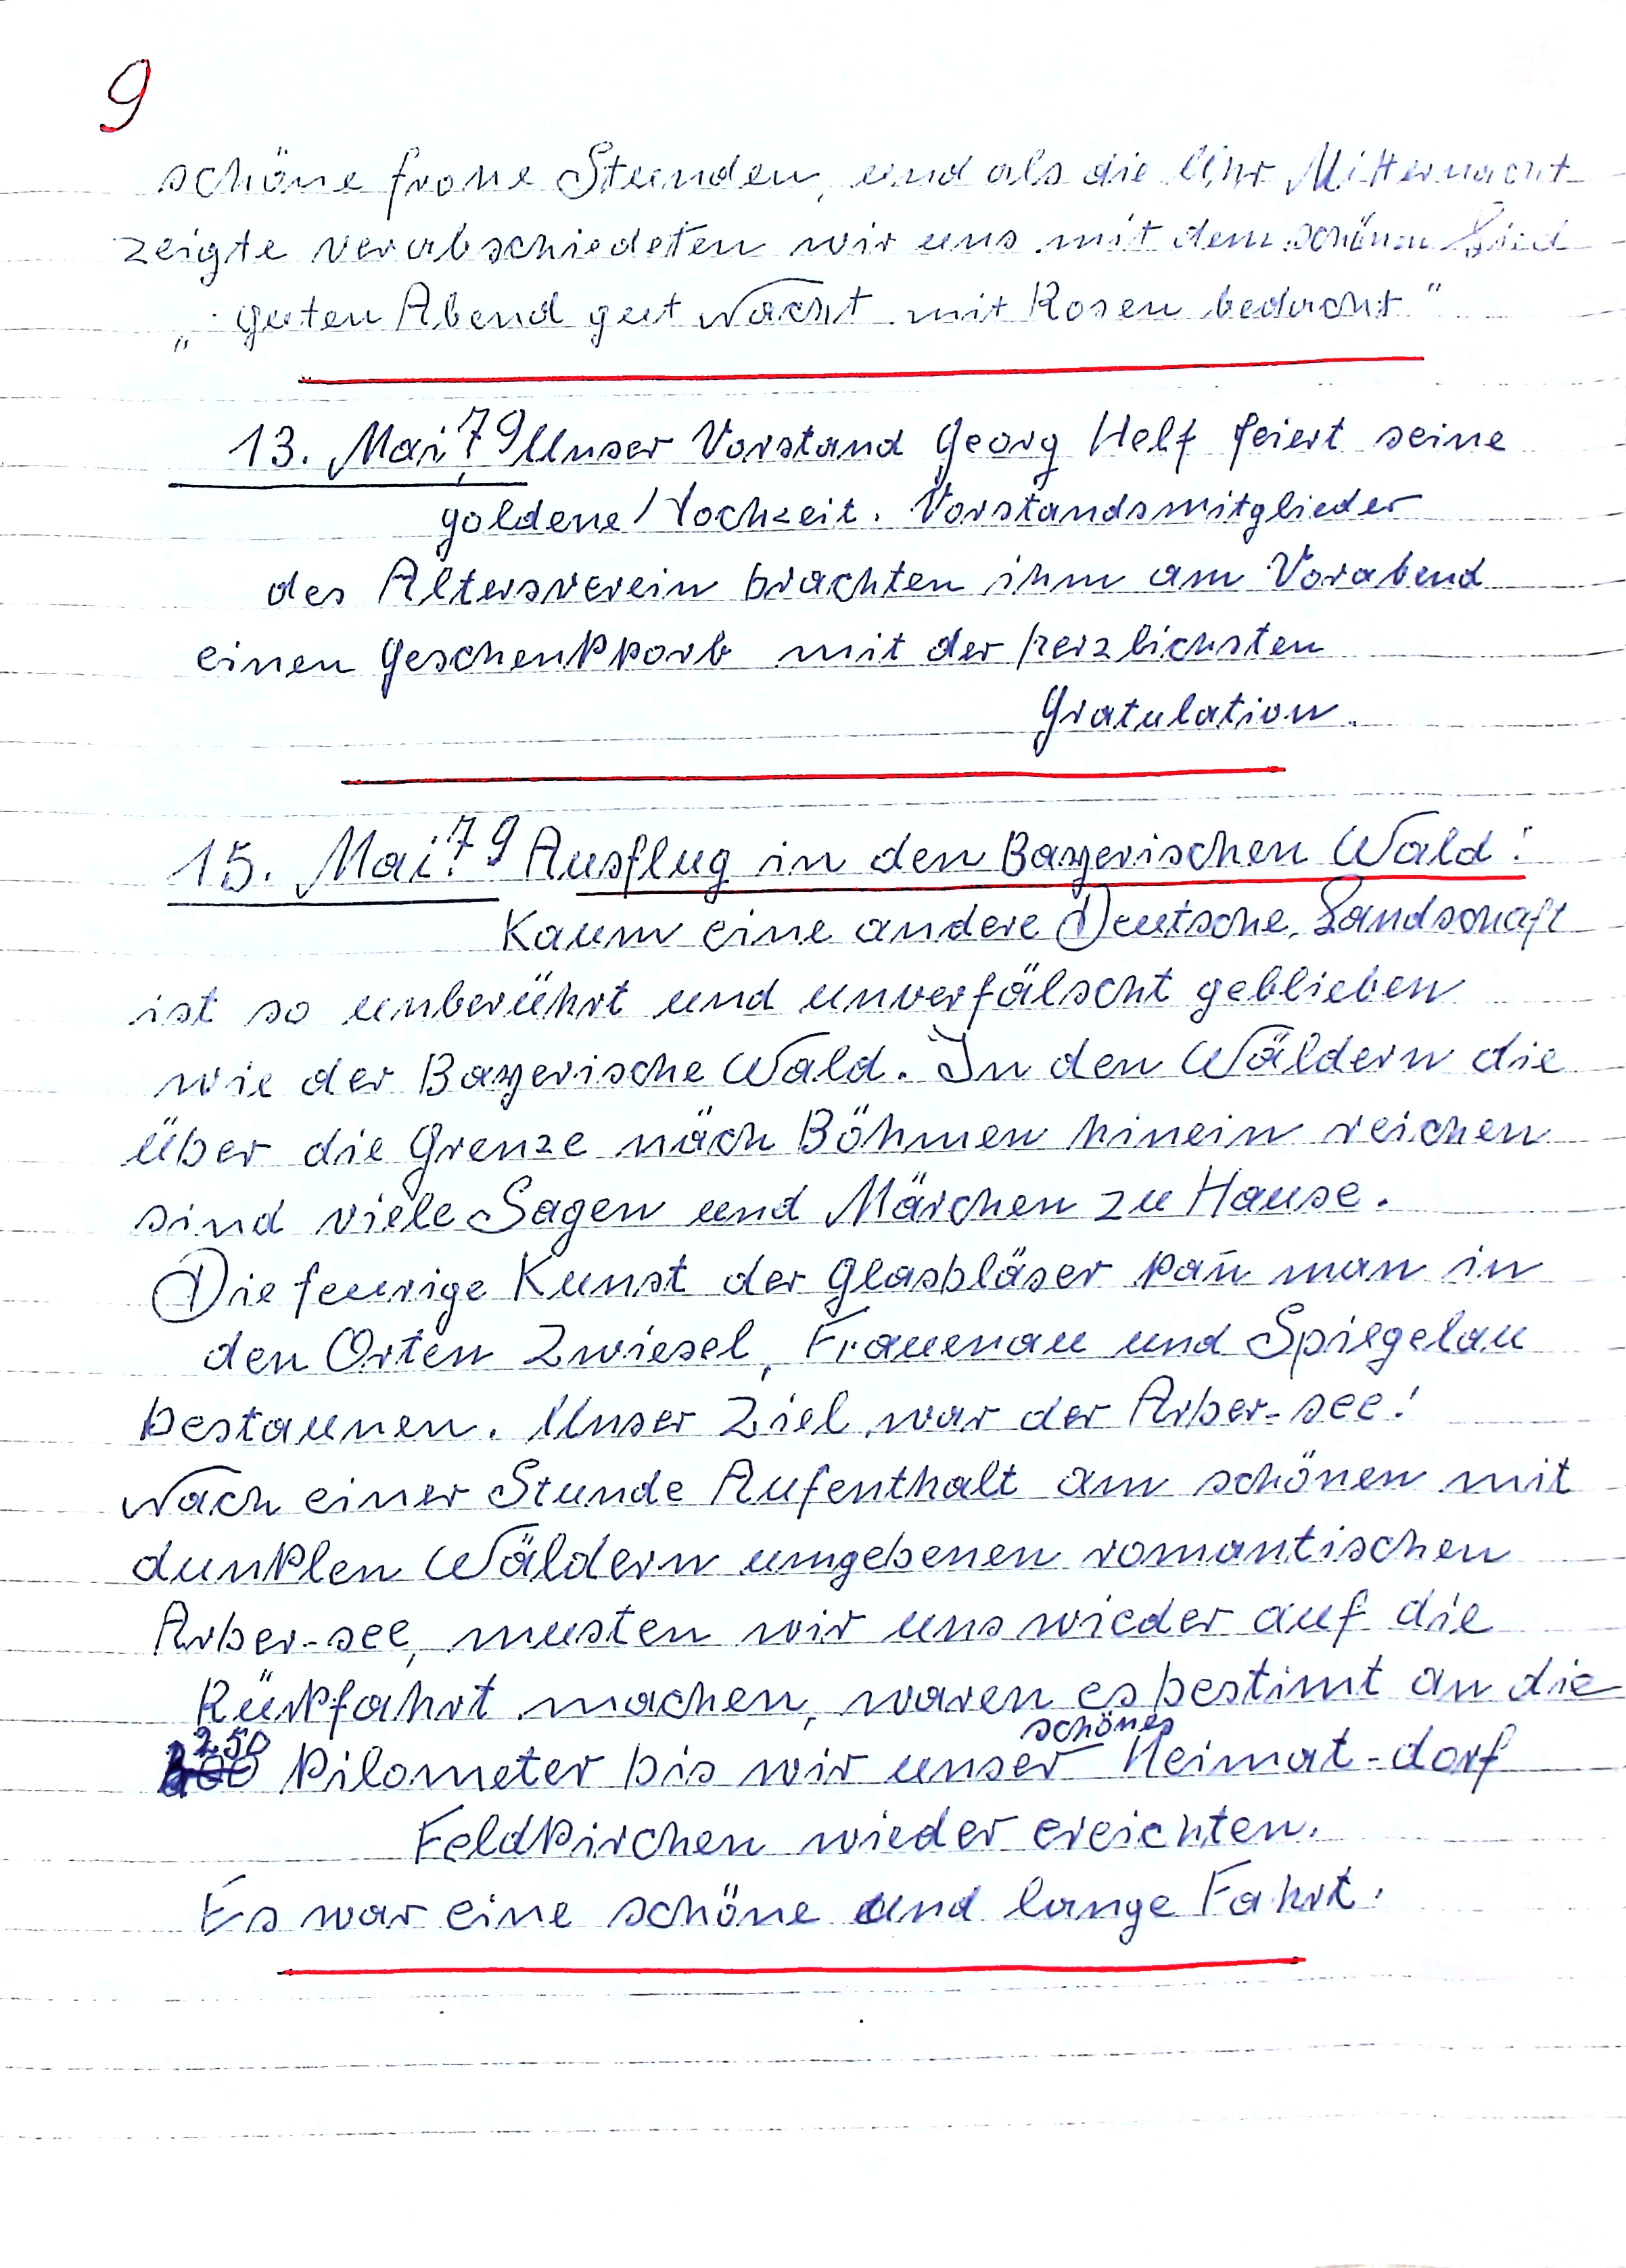 9
schöne frohe Stunden, und als die Uhr Mitternacht
zeigte verabschiedeten wir uns mit dem schönen Lied
„Guten Abend gut Nacht mit Rosen bedacht"
13. Mai 79 Unser Vorstand Georg Helf feiert seine
goldene Hochzeit. Vorstandsmitglieder
des Altersverein brachten ihm am Vorabend
einen Geschenkkorb mit der herzlichsten
Gratulation.
15. Mai 79 Ausflug in den Bayerischen Wald!
Kaum eine andere Deutsche Landschaft
ist so unberührt und unverfälscht geblieben
wie der Bayerische Wald. In den Wäldern die
über die Grenze näch Böhmen hinein reichen
sind viele Sagen und Märchen zu Hause.
Die feurige Kunst der Glasbläser kan̄ man in
den Orten Zwiesel, Frauenau und Spiegelau
bestaunen. Unser Ziel war der Arber-see!
Nach einer Stunde Aufenthalt am schönen mit
dunklen Wäldern umgebenen romantischen
Arber-see, musten wir uns wieder auf die
Rükfahrt machen, waren es bestimt an die
250 Kilometer bis wir unser schönes Heimat-dorf
Feldkirchen wieder ereichten.
Es war eine schöne und lange Fahrt.